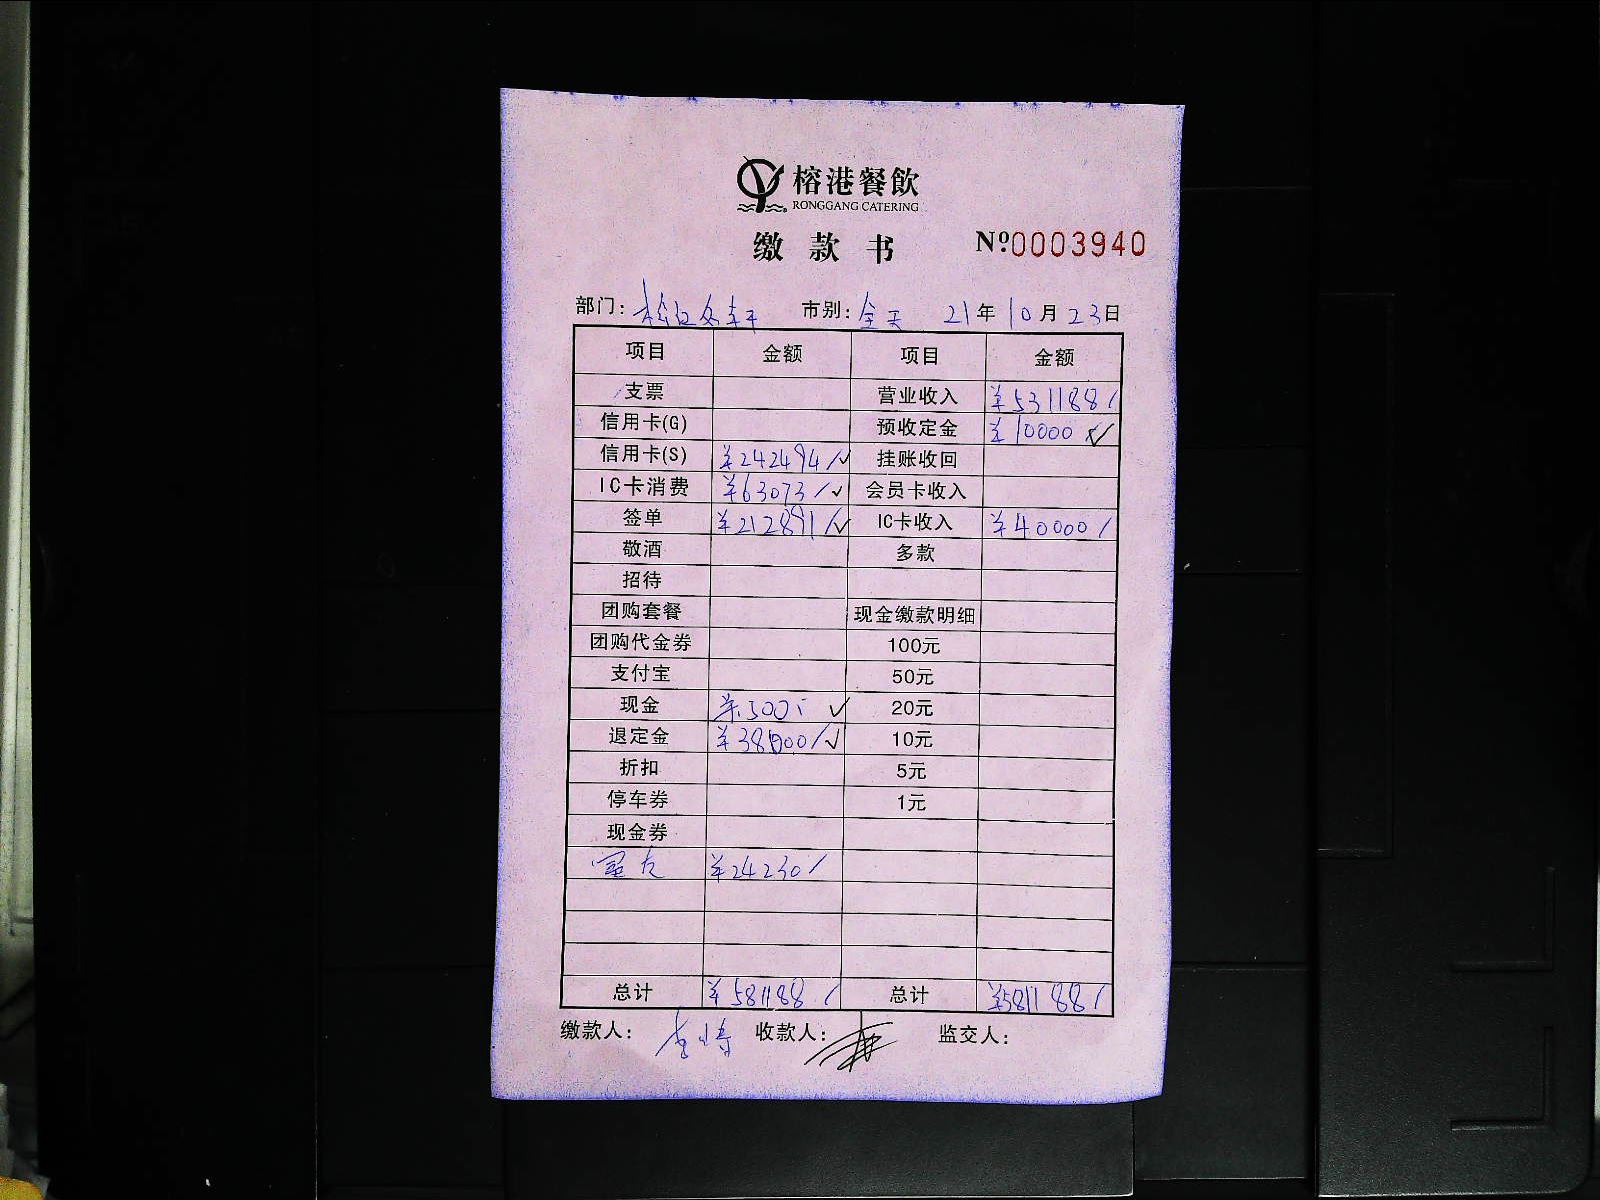 榕港餐飲
RONGGANG CATERING
缴款书 Nº0003940
部门: 市别: 全天 21年10月23日
项目 金额 项目 金额
支票 营业收入 ¥531188/
信用卡(G) 预收定金 ¥10000
信用卡(S) ¥242494/ 挂账收回
IC卡消费 ¥63073/ 会员卡收入
签单 ¥212891/ IC卡收入 ¥40000/
敬酒 多款
招待
团购套餐 现金缴款明细
团购代金券 100元
支付宝 50元
现金 ¥500 20元
退定金 ¥38000/ 10元
折扣 5元
停车券 1元
现金券
¥24230/
总计 ¥581188/ 总计 ¥581188/
缴款人: 收款人: 监交人: